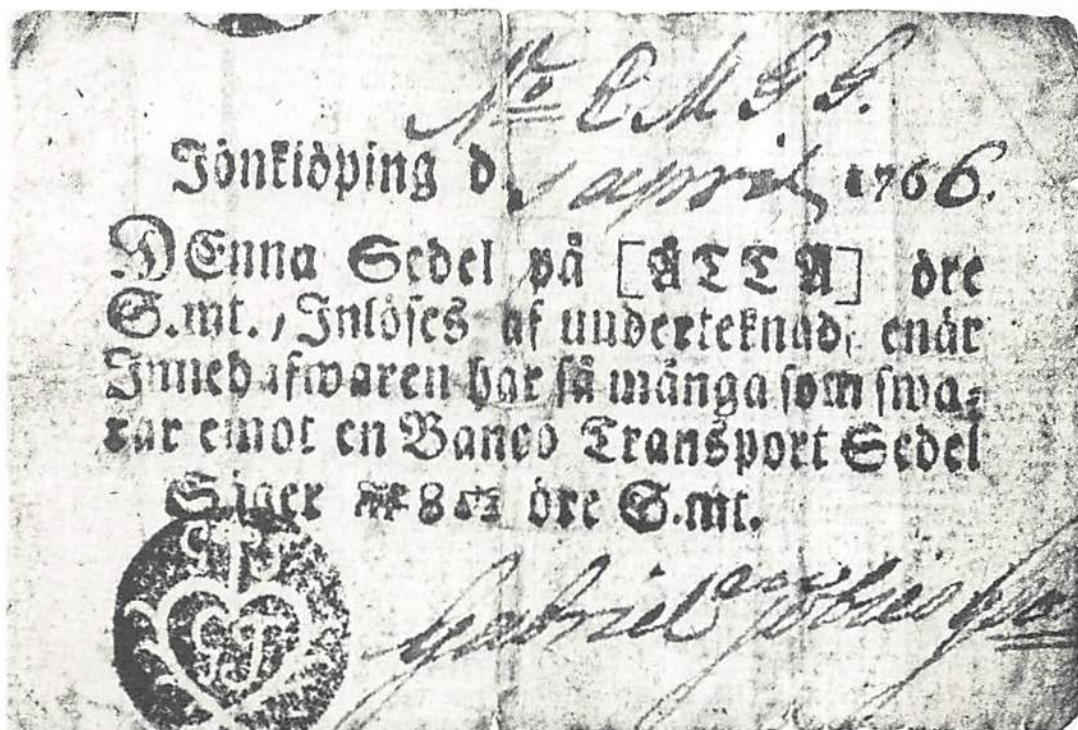 No C M G G.
Jönkiöping d. 1 april 1766.
DEnna Sedel på [ÅTTA] öre
S.mt., Inlöses af underteknad, enär
Innehafwaren har så många som swa-
rar emot en Banco Transport Sedel
Säger 8 öre S.mt.
Gabriel
GJ